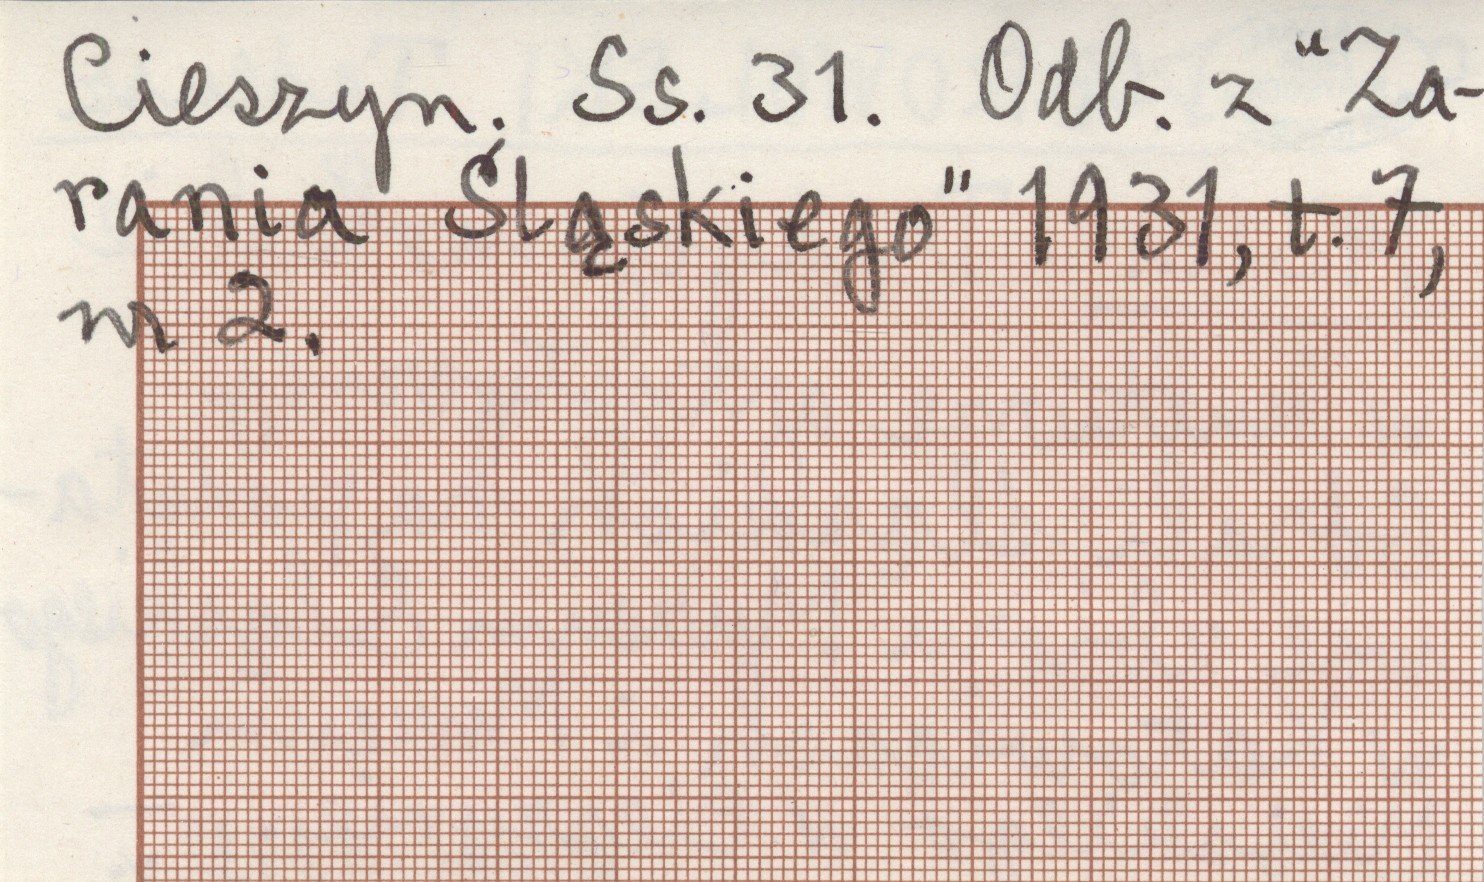 Cieszyn. Ss. 31. Odb. z "Za-
rania Śląskiego" 1931, t. 7,
nr 2.